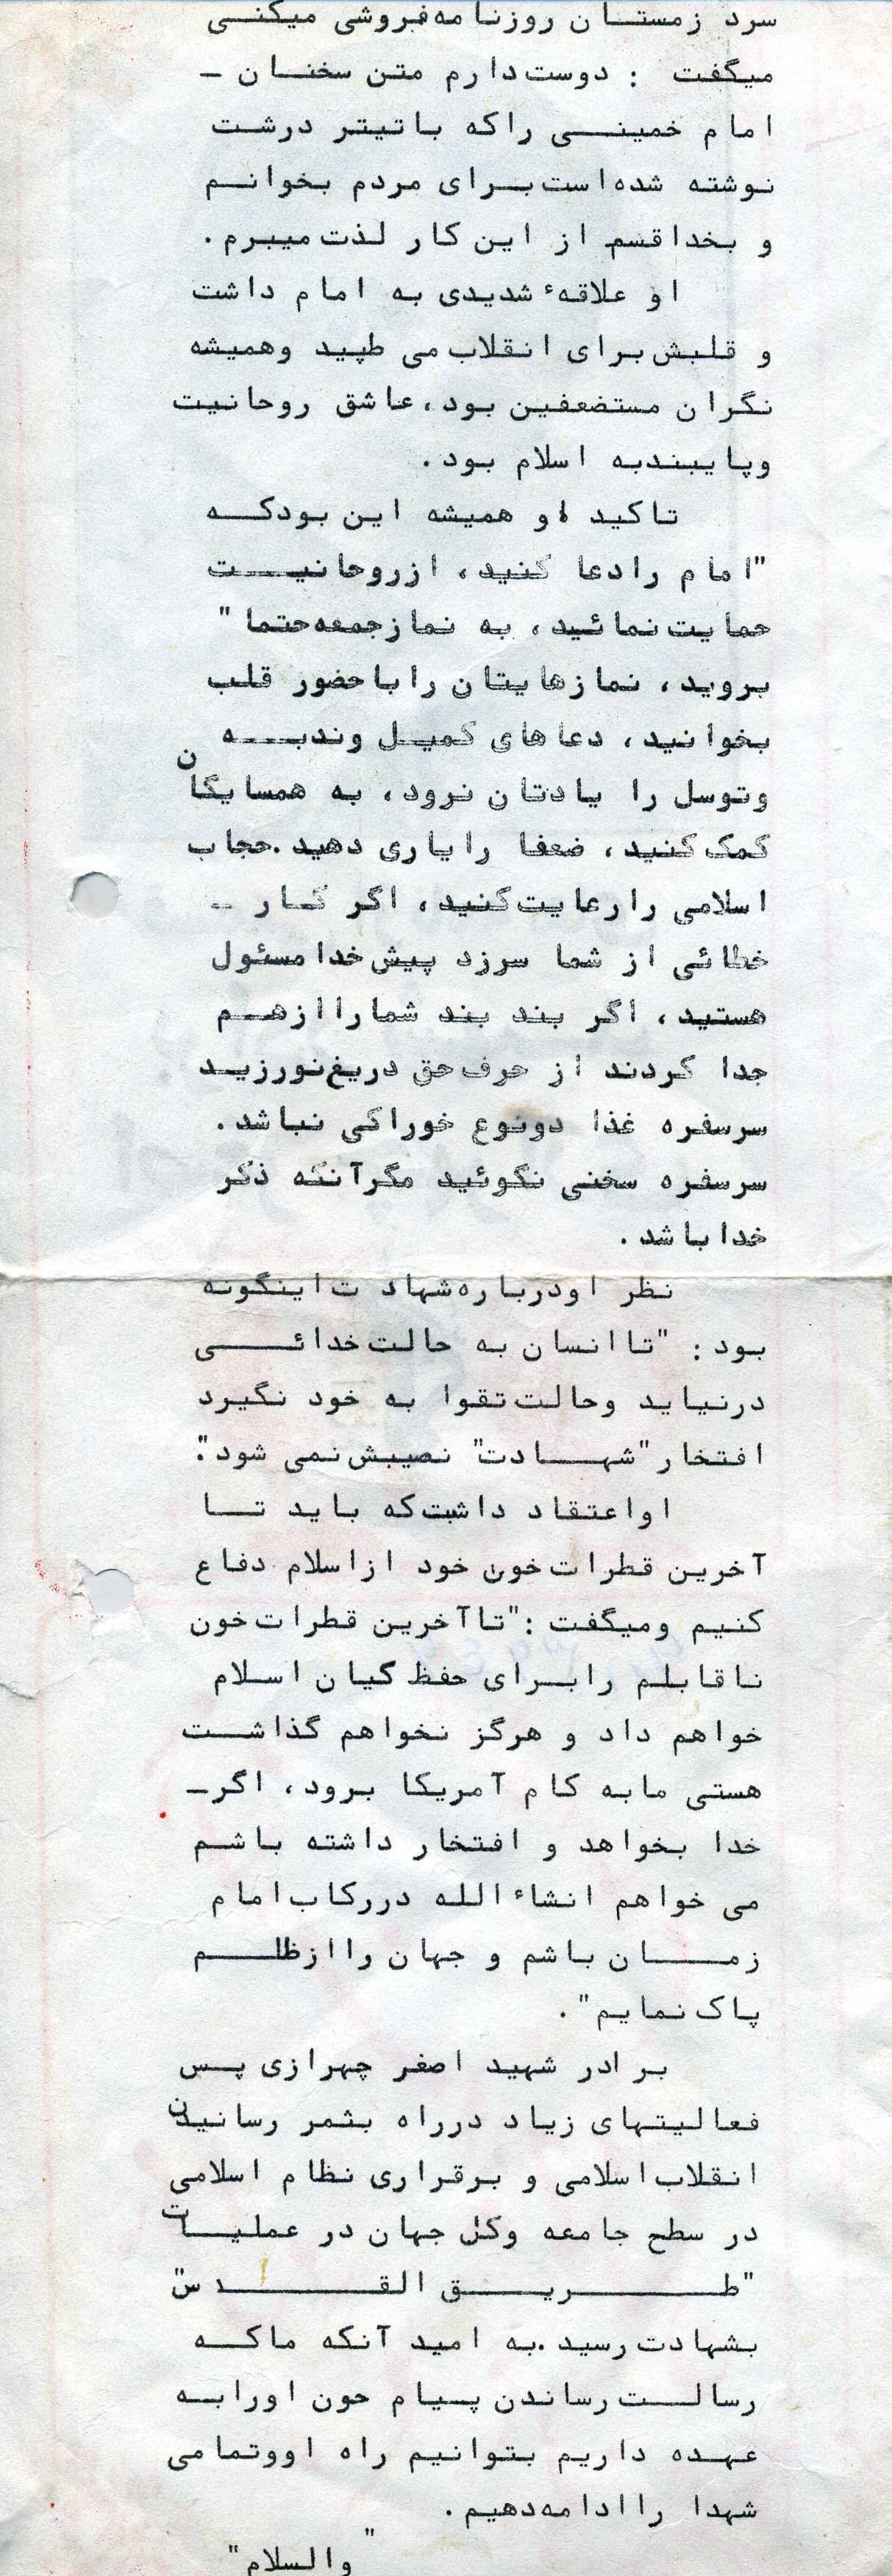 سرد زمستان روزنامه‌فروشی میکنی
میگفت : دوست‌دارم متن سخنان -
امام خمینی راکه باتیتر درشت
نوشته شده‌است‌برای مردم بخوانم
و بخداقسم از این کار لذت‌میبرم .
او علاقهٔ شدیدی به امام داشت
و قلبش‌برای انقلاب‌می طپید وهمیشه
نگران مستضعفین بود ، عاشق روحانیت
وپایبندبه اسلام بود .
تاکید او همیشه این بودکه
"امام رادعا کنید ، ازروحانیت
حمایت‌نمائید ، به نمازجمعه‌حتما "
بروید ، نمازهایتان راباحضور قلب
بخوانید ، دعاهای کمیل وندبه
وتوسل را یادتان نرود ، به همسایگان
کمک‌کنید ، ضعفا رایاری دهید .حجاب
اسلامی رارعایت‌کنید ، اگر کار -
خطائی از شما سرزد پیش‌خدامسئول
هستید ، اگر بند بند شماراازهم
جدا کردند از حرف‌حق دریغ‌نورزید
سرسفره غذا دونوع خوراکی نباشد .
سرسفره سخنی نگوئید مگرآنکه ذکر
خداباشد .
نظر اودرباره‌شهادت‌اینگونه
بود : "تاانسان به حالت‌خدائی
درنیاید وحالت‌تقوا به خود نگیرد
افتخار"شهادت" نصیبش‌نمی شود".
اواعتقاد داشت‌که باید تا
آخرین قطرات‌خون خود ازاسلام دفاع
کنیم ومیگفت :"تاآخرین قطرات‌خون
ناقابلم رابرای حفظ کیان اسلام
خواهم داد و هرگز نخواهم گذاشت
هستی مابه کام آمریکا برود ، اگر-
خدا بخواهد و افتخار داشته باشم
می خواهم انشاءالله دررکاب‌امام
زمان باشم و جهان راازظلم
پاک‌نمایم" .
برادر شهید اصغر چهرازی پس
فعالیتهای زیاد درراه بثمر رسانیدن
انقلاب‌اسلامی و برقراری نظام اسلامی
در سطح جامعه وکل جهان در عملیات
"طریق القدس"
بشهادت‌رسید .به امید آنکه ماکه
رسالت‌رساندن پیام خون اورابه
عهده داریم بتوانیم راه اووتمامی
شهدا راادامه‌دهیم .
"والسلام"